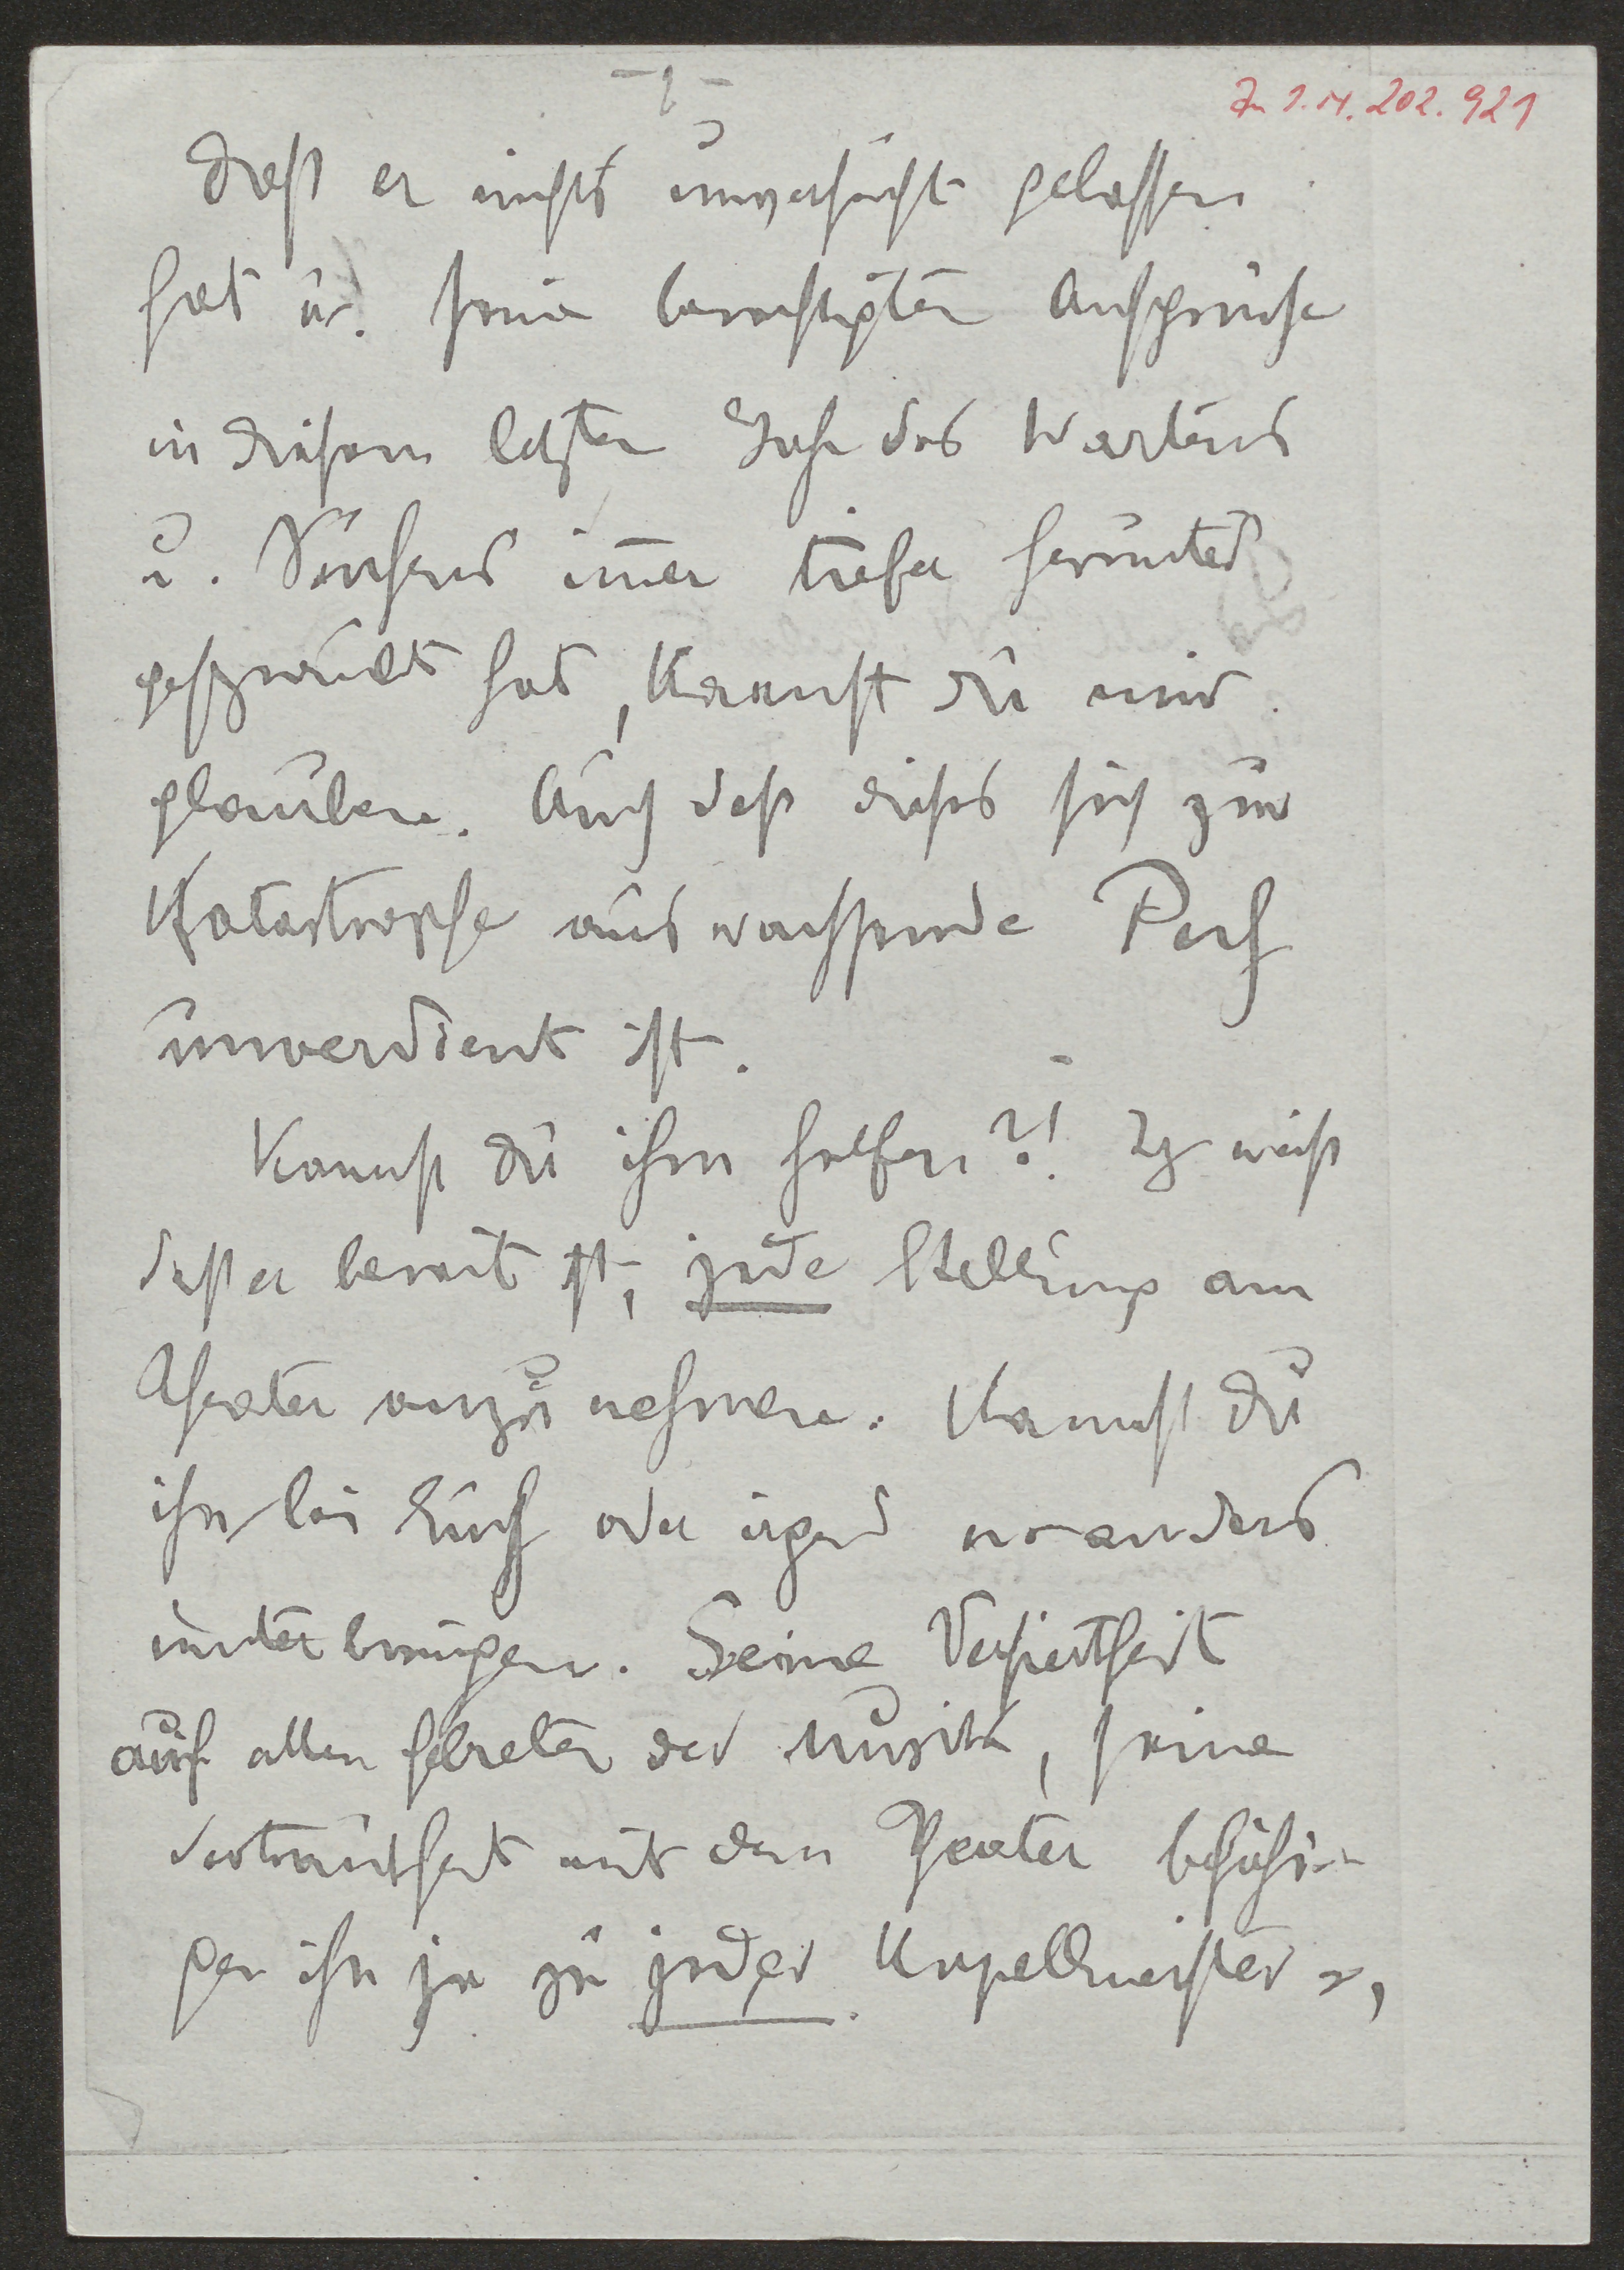 - 2 -
Zu I.N. 202.921
Daß er nichts unversucht gelassen
hat u. seine berechtigten Ansprüche
in diesem letzten Jahr des Wartens
u. Suchens im̄er tiefer herunter
geschraubt hat, kannst du mir
glauben. Auch daß dieses sich zur
Katastrophe auswachsende Pech
unverdient ist.
Kannst du ihm helfen?! Ich weiß
daß er bereit ist, jede Stellung am
Theater anzunehmen. Kannst Du
ihn bei Euch oder irgend wo anders
unterbringen. Seine Versiertheit
auf allen Gebieten der Musik, seine
Vertrautheit mit dem Theater befähi-
gen ihn ja zu jeder Kapellmeister-,